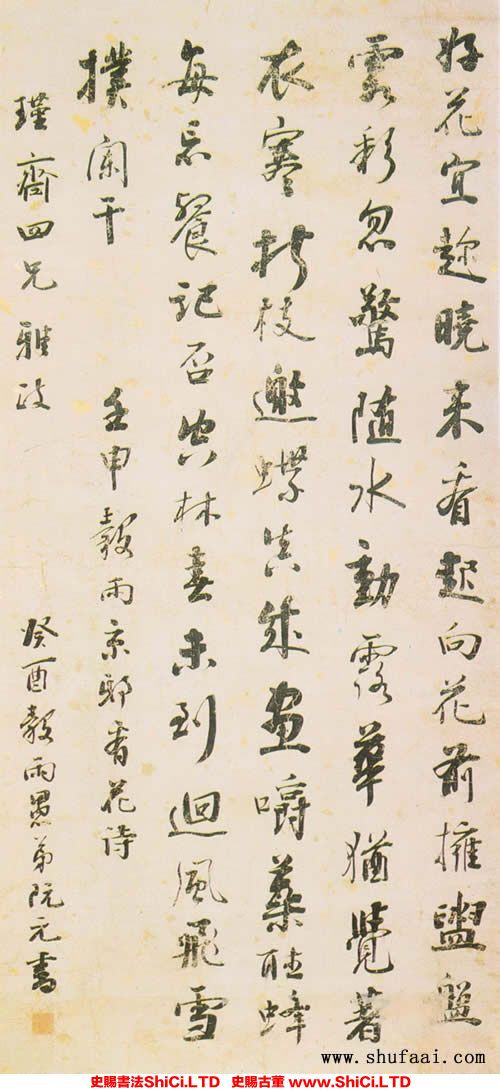 好花宜趁曉來看起向花前擁盥盤
霞彩忽驚隨水動露華猶覺著
衣寒折枝邀蝶真成畫嚼蘂聽蜂
每忘餐記否空林春未到迴風飛雪
撲闌干 壬申穀雨京邸看花詩
瑾齋四兄雅政
癸酉穀雨愚弟阮元書
www.shufaai.com
史賜書法ShiCi.LTD 史賜古董ShiCi.LTD